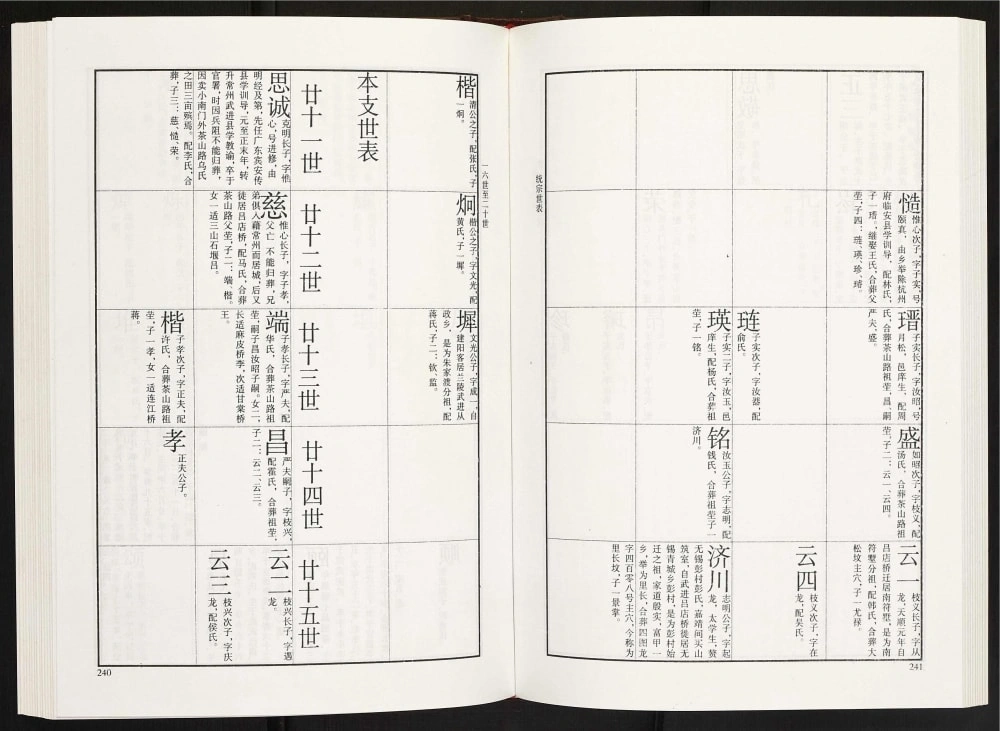 一六世至二十世
楷
清公之子，配张氏，子
一炯。
本支世表
廿十一世
思诚
克明长子，字惟
心，号进修，由
明经及第，先任广东宾安传
县学训导，元至正末年，转
升常州武进县学教谕，卒于
官署，时因兵阻不能归葬，
因卖小南门外茶山路乌氏
之田三亩殡焉。配李氏，合
葬，子三：慈、慥、荣。
炯
楷公之子，字文光，配
黄氏，子一墀。
廿十二世
慈
惟心长子，字子孝，
父亡 不能归葬，兄
弟俱入籍常州而居城，后又
徙居吕店桥，配马氏，合葬
茶山路父茔，子二：端、楷。
女一适三山石堰吕。
墀
文光公子，字成一，自
建阳客居兰陵武进从
政乡，是为朱家渡分祖，配
蒋氏，子二：钦、监。
廿十三世
端
子孝长子，字严夫，配
华氏，合葬茶山路祖
茔，嗣子昌汝昭子嗣。女二，
长适麻皮桥李，次适甘棠桥
王。
楷
子孝次子，字正夫，配
许氏，合葬茶山路祖
茔，子一孝，女一适连江桥
蒋。
廿十四世
昌
严夫嗣子，字枝兴，
配霍氏，合葬祖茔，
子二：云二、云三。
孝
正夫公子。
廿十五世
云二
枝兴长子，字遇
龙。
云三
枝兴次子，字庆
龙，配侯氏。
240
统宗世表
慥
惟心次子，字子实，号
颐真，由乡举除杭州
府临安县学训导，配林氏，
子一瑨。继娶王氏，合葬父
茔，子四：琏、瑛、珍、琦。
瑨
子实长子，字汝昭，号
月松，邑庠生，配周
氏，合葬茶山路祖茔，昌，嗣
严夫，盛。
琏
子实次子，字汝器，配
俞氏。
瑛
子实二子，字汝玉，邑
庠生，配杨氏，合葬祖
茔，子一铭。
盛
如昭次子，字枝义，配
汤氏，合葬茶山路祖
茔，子二：云一、云四。
铭
汝玉公子，字志明，配
钱氏，合葬祖茔子一
济川。
云一
枝义长子，字从
龙，天顺元年自
吕店桥迁居南符墅，是为南
符墅分祖，配韩氏，合葬大
松坟主穴，子一尤禄。
云四
枝义次子，字在
龙，配吴氏。
济川
志明公子，字起
龙，太学生，赘
无锡彭村彭氏，嘉靖间买山
筑室，自武进吕店桥徙居无
锡青城乡彭村，是为彭村始
迁之祖，家道殷实，富甲一
乡，举为里长，合葬四图龙
字四百零八号主穴，今称为
里长坟，子一景掌。
241